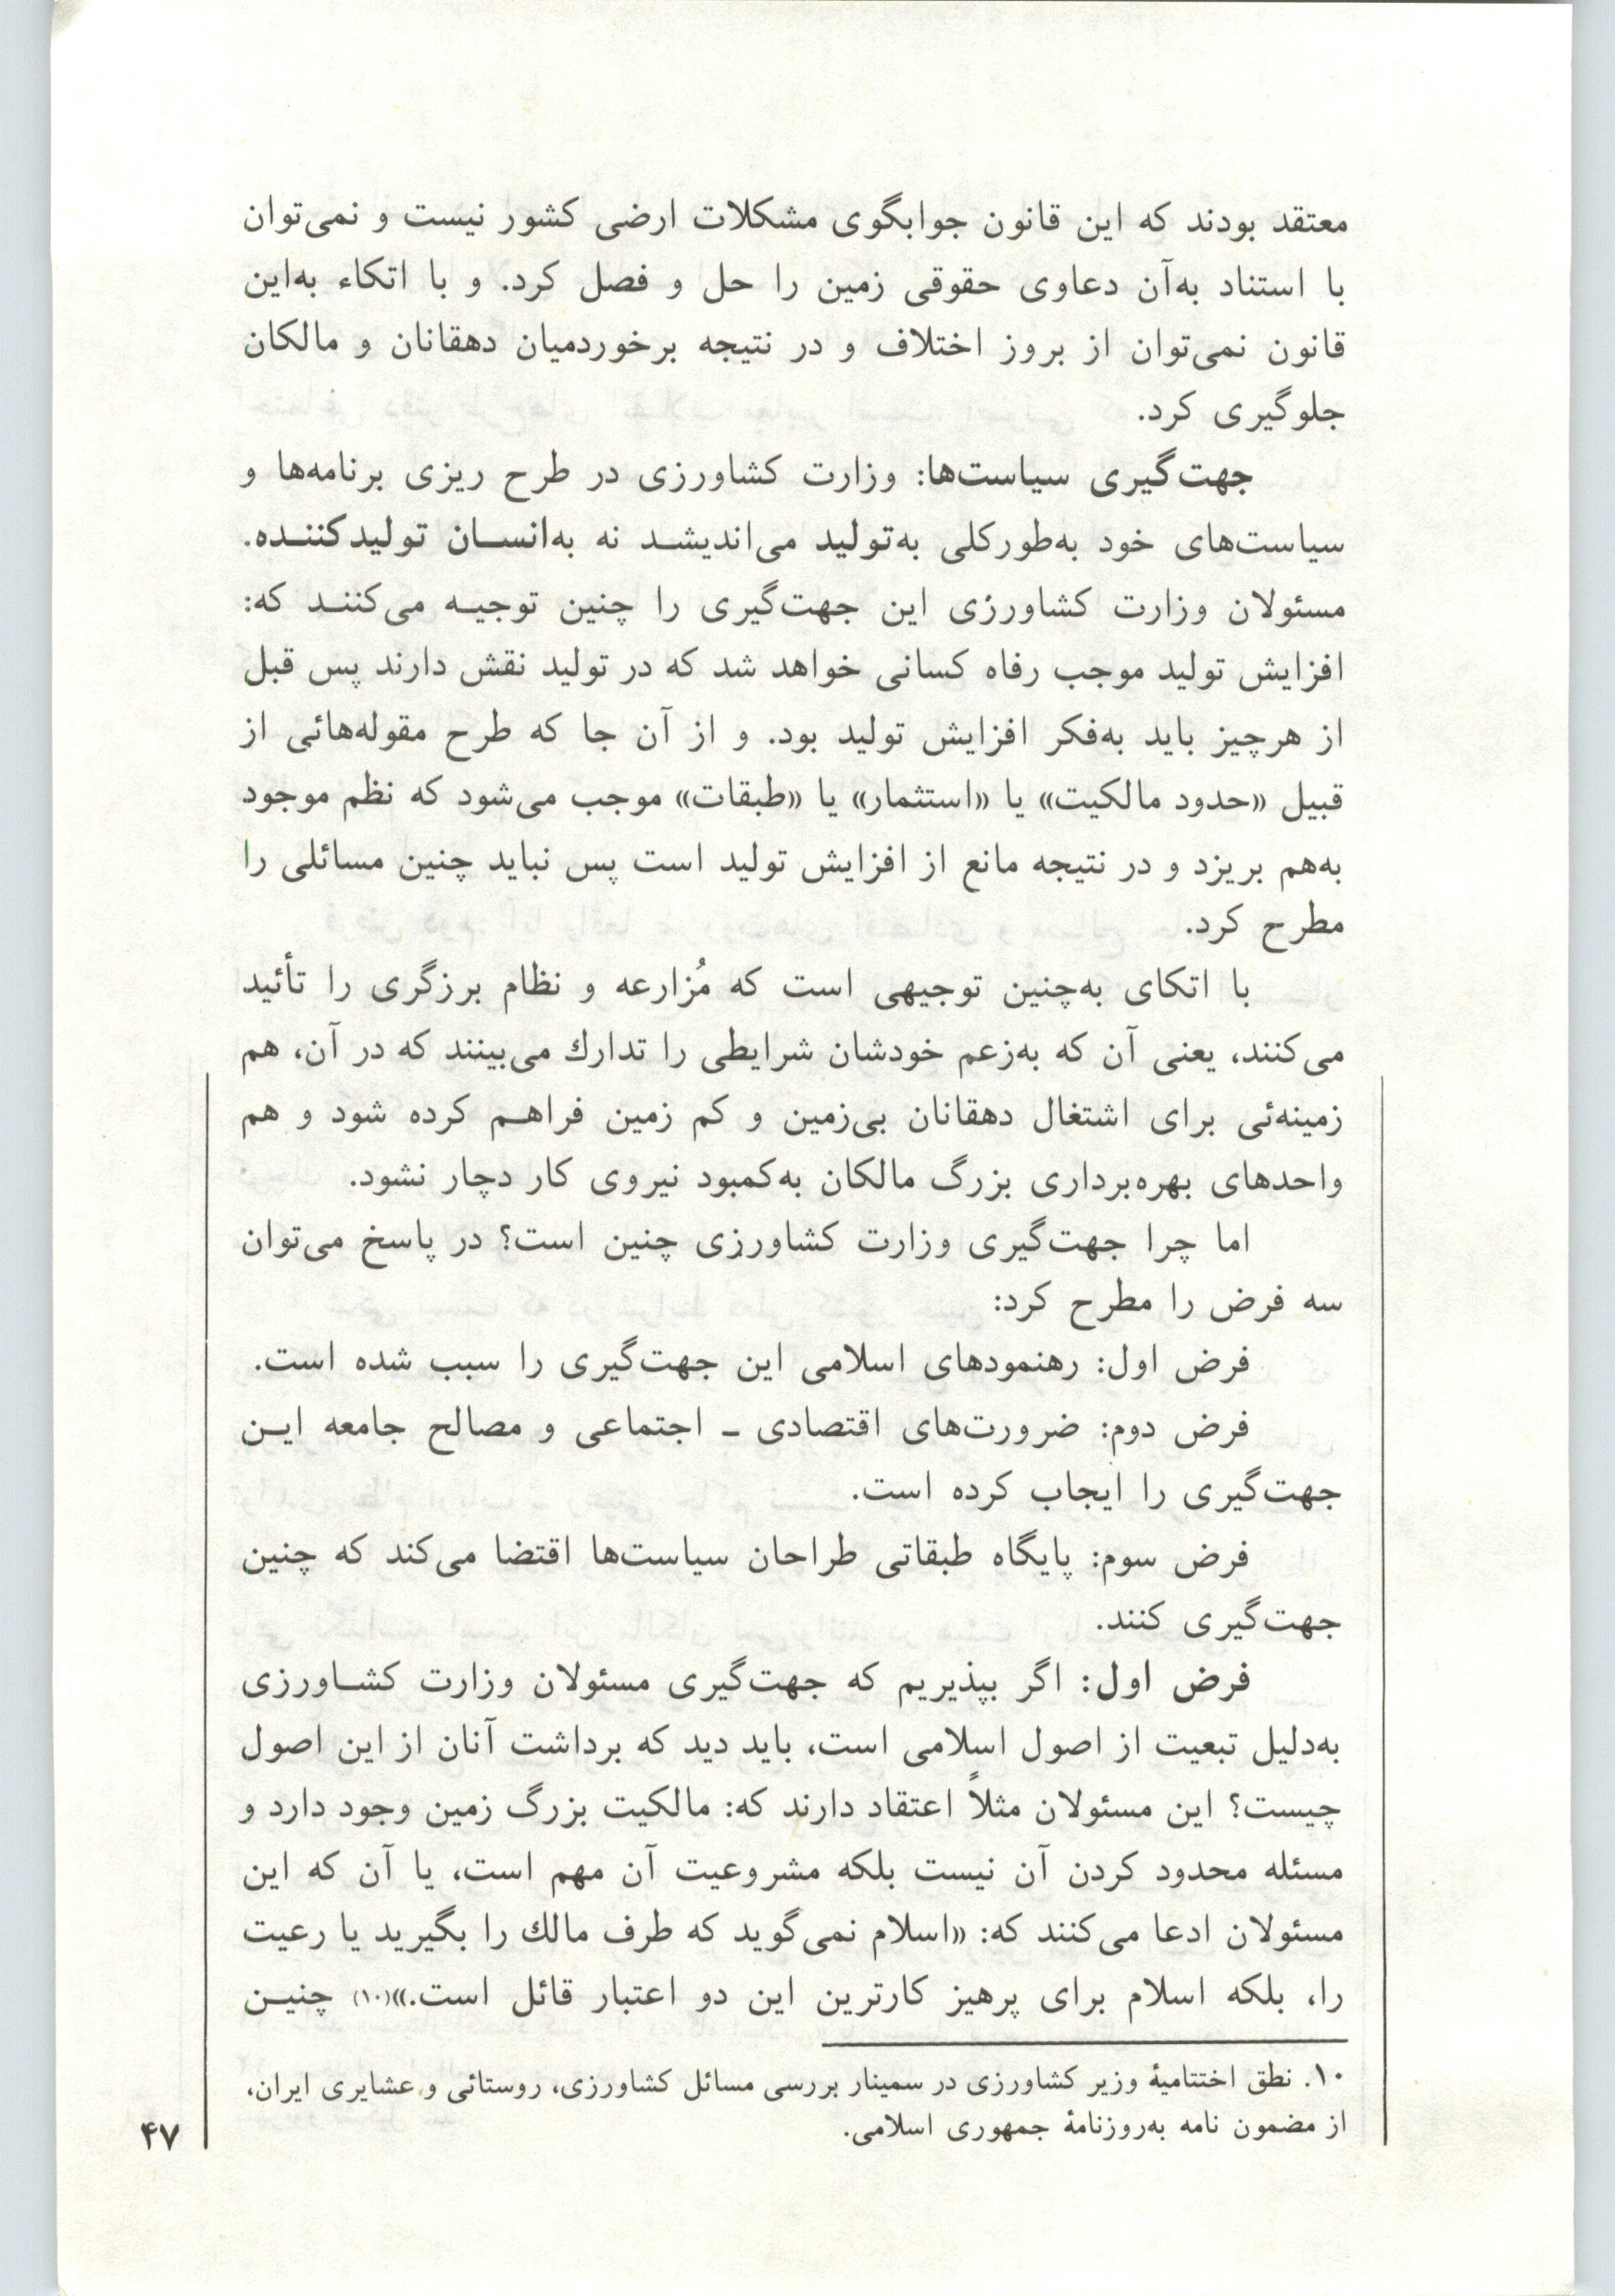 معتقد بودند که این قانون جوابگوی مشکلات ارضی کشور نیست و نمی‌توان
با استناد به‌آن دعاوی حقوقی زمین را حل و فصل کرد. و با اتکاء به‌این
قانون نمی‌توان از بروز اختلاف و در نتیجه برخوردمیان دهقانان و مالکان
جلوگیری کرد.
جهت‌گیری سیاست‌ها: وزارت کشاورزی در طرح ریزی برنامه‌ها و
سیاست‌های خود به‌طورکلی به‌تولید می‌اندیشد نه به‌انسان تولیدکننده.
مسئولان وزارت کشاورزی این جهت‌گیری را چنین توجیه می‌کنند که:
افزایش تولید موجب رفاه کسانی خواهد شد که در تولید نقش دارند پس قبل
از هرچیز باید به‌فکر افزایش تولید بود. و از آن جا که طرح مقوله‌هائی از
قبیل «حدود مالکیت» یا «استثمار» یا «طبقات» موجب می‌شود که نظم موجود
به‌هم بریزد و در نتیجه مانع از افزایش تولید است پس نباید چنین مسائلی را
مطرح کرد.
با اتکای به‌چنین توجیهی است که مُزارعه و نظام برزگری را تأئید
می‌کنند، یعنی آن که به‌زعم خودشان شرایطی را تدارك می‌بینند که در آن، هم
زمینه‌ئی برای اشتغال دهقانان بی‌زمین و کم زمین فراهم کرده شود و هم
واحدهای بهره‌برداری بزرگ مالکان به‌کمبود نیروی کار دچار نشود.
اما چرا جهت‌گیری وزارت کشاورزی چنین است؟ در پاسخ می‌توان
سه فرض را مطرح کرد:
فرض اول: رهنمودهای اسلامی این جهت‌گیری را سبب شده است.
فرض دوم: ضرورت‌های اقتصادی ـ اجتماعی و مصالح جامعه این
جهت‌گیری را ایجاب کرده است.
فرض سوم: پایگاه طبقاتی طراحان سیاست‌ها اقتضا می‌کند که چنین
جهت‌گیری کنند.
فرض اول: اگر بپذیریم که جهت‌گیری مسئولان وزارت کشاورزی
به‌دلیل تبعیت از اصول اسلامی است، باید دید که برداشت آنان از این اصول
چیست؟ این مسئولان مثلاً اعتقاد دارند که: مالکیت بزرگ زمین وجود دارد و
مسئله محدود کردن آن نیست بلکه مشروعیت آن مهم است، یا آن که این
مسئولان ادعا می‌کنند که: «اسلام نمی‌گوید که طرف مالك را بگیرید یا رعیت
را، بلکه اسلام برای پرهیز کارترین این دو اعتبار قائل است.»(۱۰) چنین
۱۰. نطق اختتامیهٔ وزیر کشاورزی در سمینار بررسی مسائل کشاورزی، روستائی و عشایری ایران،
از مضمون نامه به‌روزنامهٔ جمهوری اسلامی.
۴۷